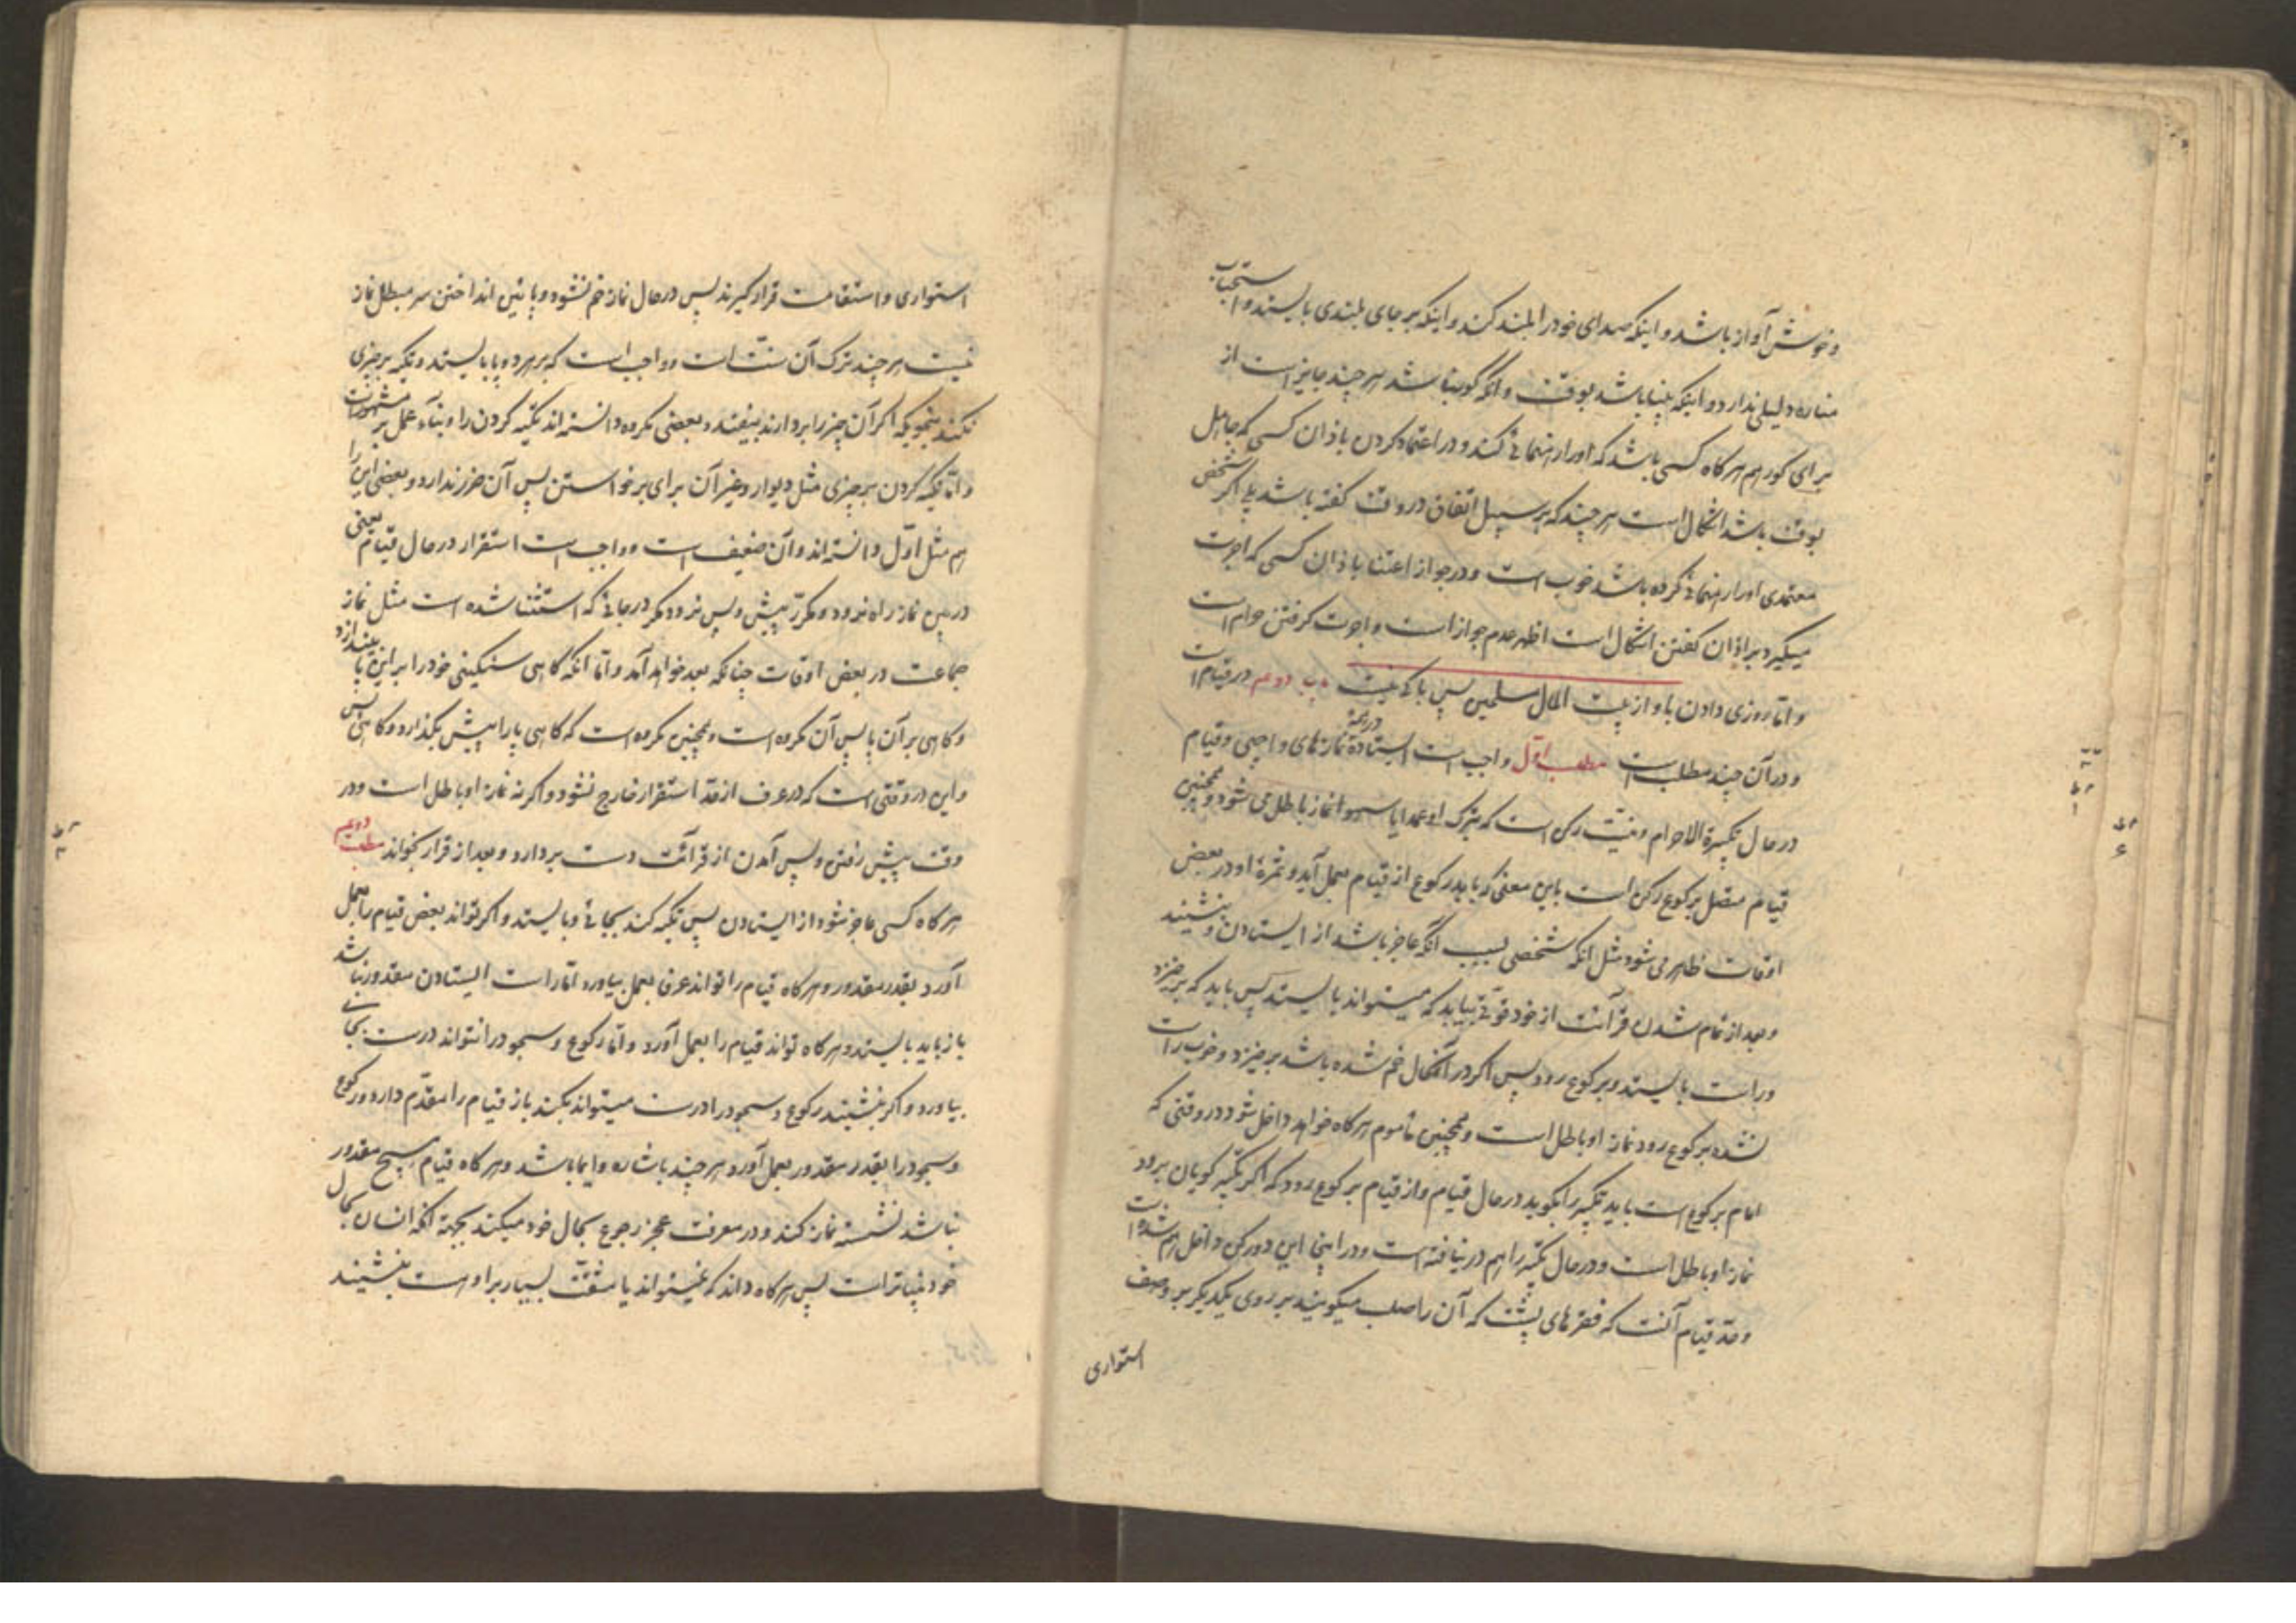 و خوش آواز باشد و اینکه صدای خود را بلند کند و اینکه بر جای بلندی بایستد و استحباب
مناره دلیلی ندارد و اینکه بینا باشد بوقت و اگر کور بینا شد هر چند جایز است از
برای کور هم هر گاه کسی باشد که او را رهنمائی کند و در اعتماد کردن باذان کسی که جاهل
بوقت باشد اشکال است هر چند که بر سبیل اتفاق در وقت گفته باشد بلی اگر شخص
معتمدی او را رهنمائی کرده باشد خوب است و در جواز اعتنا باذان کسی که اجرت
میگیرد بر اذان گفتن اشکال است اظهر عدم جواز است و اجرت گرفتن حرام است
و اما روزی دادن باو از بیت المال مسلمین پس باکی نیست باب دویم در قیام است
و در آن چند مطلب است مطلب اول واجب است ایستادن در همهٔ نمازهای واجبی و قیام
در حال تکبیرة الاحرام و نیت رکن است که بترک او عمدا یا سهوا نماز باطل می شود و همچنین
قیام متصل برکوع رکن است باین معنی که باید رکوع از قیام بعمل آید و ثمرهٔ او در بعض
اوقات ظاهر می شود مثل انکه شخصی بسبب انکه عاجز باشد از ایستادن بنشیند
و بعد از تمام شدن قرآئت از خود قوتی بیابد که میتواند بایستد پس باید که برخیزد
و راست بایستد و برکوع رود پس اگر در آنحال خم شده باشد برخیزد و خوب راست
نشده برکوع رود نماز او باطل است و همچنین مأموم هر گاه خواهد داخل شود در وقتی که
امام برکوع است باید تکبیر را بگوید در حال قیام و از قیام برکوع رود که اگر تکبیر گویان برود
نماز او باطل است و در حال تکبیر را هم در نیافته است و در اینجا این دو رکن داخل هم شده است
و حد قیام آنست که فقرهای پشت که آن را صلب میگویند بر روی یکدیگر بر وصف
استواری
استواری و استقامت قرار گیرند پس در حال نماز خم نشود و پائین انداختن سر مبطل نماز
نیست هر چند ترک آن سنت است و واجب است که بر هر دو پا بایستد و تکیه بر چیزی
نکند بنحویکه اگر آن چیز را بردارند بیفتد و بعضی مکروه دانسته اند تکیه کردن را و بنآء عمل بر مشهور است
و اما تکیه کردن بر چیزی مثل دیوار و غیر آن برای برخواستن پس آن ضرر ندارد و بعضی این را
هم مثل اول دانسته اند و آن ضعیف است و واجب است استقرار در حال قیام یعنی
در بین نماز راه نرود و مکرر پیش و پس نرود مگر در جائی که استثنا شده است مثل نماز
جماعت در بعض اوقات چنانکه بعد خواهد آمد و اما انکه گاهی سنگینی خود را بر این پا بیندازد
و گاهی بر آن پا پس آن مکروه است و همچنین مکروه است که گاهی پا را پیش بگذارد و گاهی پس
و این در وقتی است که در عرف از حد استقرار خارج نشود و اگر نه نماز او باطل است و در
وقت پیش رفتن و پس آمدن از قرآئت دست بردارد و بعد از قرار بخواند مطلب دویم
هر گاه کسی عاجز شود از ایستادن پس تکیه کند بجائی و بایستد و اگر تواند بعض قیام را بعمل
آورد بقدر مقدور و هر گاه قیام را تواند عرفا بعمل بیاورد اما راست ایستادن مقدور نباشد
باز باید بایستد و هر گاه تواند قیام را بعمل آورد و اما رکوع و سجود را نتواند درست بجای
بیاورد و اگر بنشیند رکوع و سجود را درست میتواند بکند باز قیام را مقدم دارد و رکوع
و سجود را بقدر مقدور بعمل آورد هر چند باشاره و ایما باشد و هر گاه قیام بهیچ مقدور
نباشد نشسته نماز کند و در معرفت عجز رجوع بحال خود میکند بجهة انکه انسان بحال
خود بیناتر است پس هر گاه داند که نمیتواند یا مشقت بسیار بر او هست بنشیند